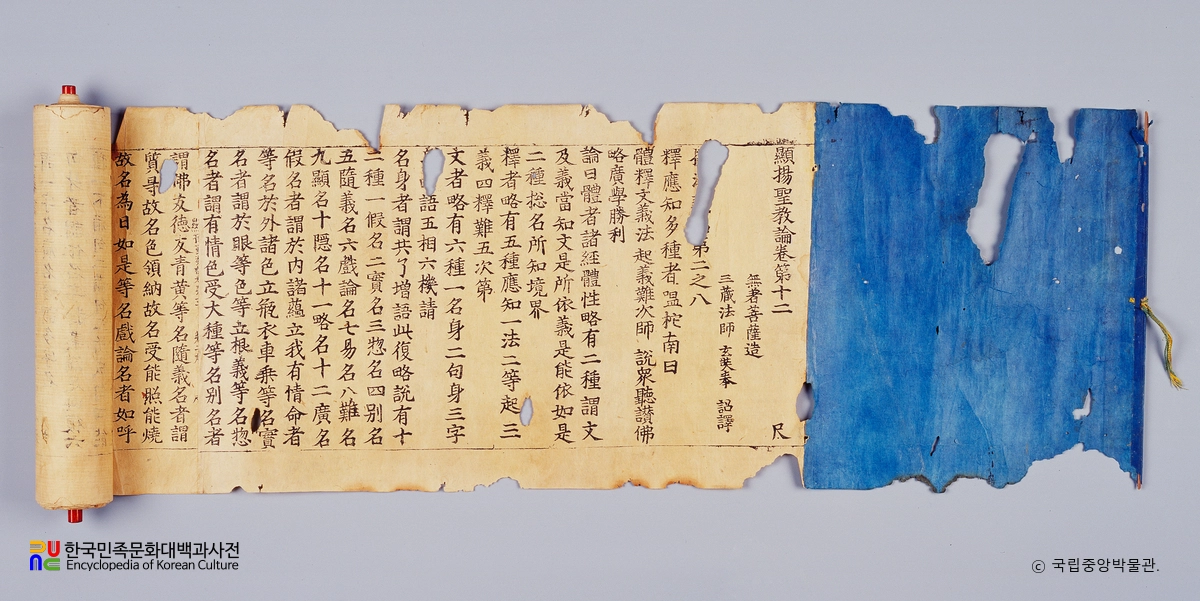 顯揚聖教論卷第十二 尺
無著菩薩造
三藏法師 玄奘奉 詔譯
第二之八
釋應知多種者 嗢柁南曰
體釋文義法 起義難次師 說衆聽讃佛
略廣學勝利
論曰體者諸經體性略有二種謂文
及義當知文是所依義是能依如是
二種捴名所知境界
釋者略有五種應知一法二等起三
義四釋難五次第
文者略有六種一名身二句身三字
語五相六機請
名身者謂共了增語此復略說有十
二種一假名二實名三惣名四別名
五隨義名六戲論名七易名八難名
九顯名十隱名十一略名十二廣名
假名者謂於內諸蘊立我有情命者
等名於外諸色立瓶衣車乘等名實
名者謂於眼等色等立根義等名惣
名者謂有情色受大種等名別名者
謂佛友德友青黃等名隨義名者謂
質㝵故名色領納故名受能照能燒
故名為日如是等名戲論名者如呼
한국민족문화대백과사전
Encyclopedia of Korean Culture
ⓒ 국립중앙박물관.